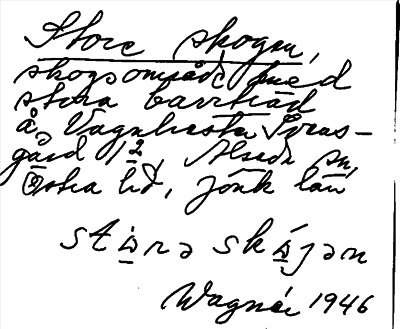 Store skogen,
skogsområde med
stora barrträd
å Vagnhester Svens-
gård 1², Alseda sn,
Östra hd, Jönk län
stωrə skωgən
Wagnér 1946